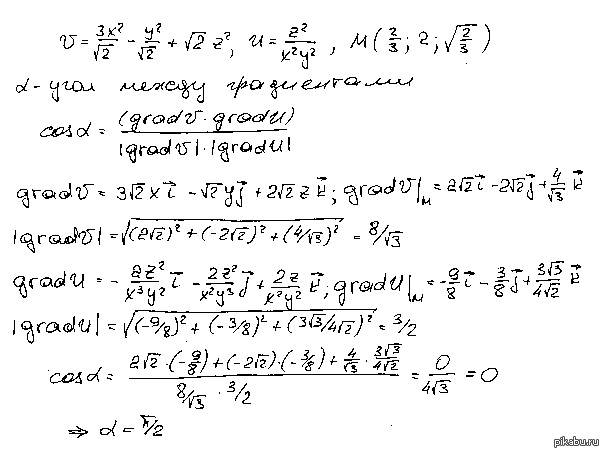 V = 3x²/√2 − y²/√2 + √2 z², U = z²/(x²y²), M(2/3; 2; √(2/3))
α - угол между градиентами
cosα = (gradV · gradU) / (|gradV| · |gradU|)
gradV = 3√2 x i⃗ − √2 y j⃗ + 2√2 z k⃗; gradV|_M = 2√2 i⃗ − 2√2 j⃗ + 4/√3 k⃗
|gradV| = √((2√2)² + (−2√2)² + (4/√3)²) = 8/√3
gradU = − 2z²/(x³y²) i⃗ − 2z²/(x²y³) j⃗ + 2z/(x²y²) k⃗; gradU|_M = −9/8 i⃗ − 3/8 j⃗ + 3√3/(4√2) k⃗
|gradU| = √((−9/8)² + (−3/8)² + (3√3/4√2)²) = 3/2
cosα = (2√2 · (−9/8) + (−2√2) · (−3/8) + 4/√3 · 3√3/(4√2)) / (8/√3 · 3/2) = 0/(4√3) = 0
⇒ α = π/2
pikabu.ru